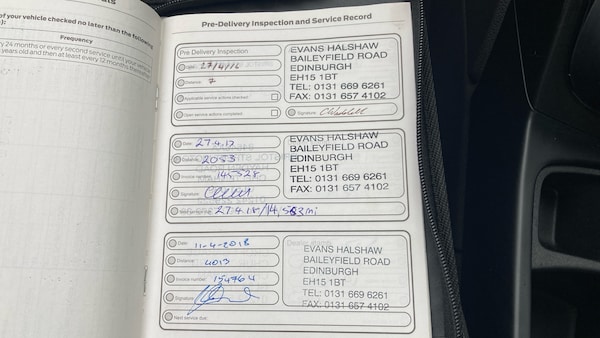 of your vehicle checked no later than the following
Frequency
y 24 months or every second service until your vehicle
years old and then at least every 12 months thereafter
Pre-Delivery Inspection and Service Record
Pre Delivery Inspection
Date: 27/4/16
Distance: 7
Applicable service actions checked:
Open service actions completed:
EVANS HALSHAW
BAILEYFIELD ROAD
EDINBURGH
EH15 1BT
TEL: 0131 669 6261
FAX: 0131 657 4102
Signature:
Date: 27.4.17
Distance: 2053
Invoice number: 145528
Signature:
Next service due: 27.4.18/14,553mi
EVANS HALSHAW
BAILEYFIELD ROAD
EDINBURGH
EH15 1BT
TEL: 0131 669 6261
FAX: 0131 657 4102
Date: 11-4-2018
Distance: 4013
Invoice number: 154764
Signature:
Next service due:
EVANS HALSHAW
BAILEYFIELD ROAD
EDINBURGH
EH15 1BT
TEL: 0131 669 6261
FAX: 0131 657 4102